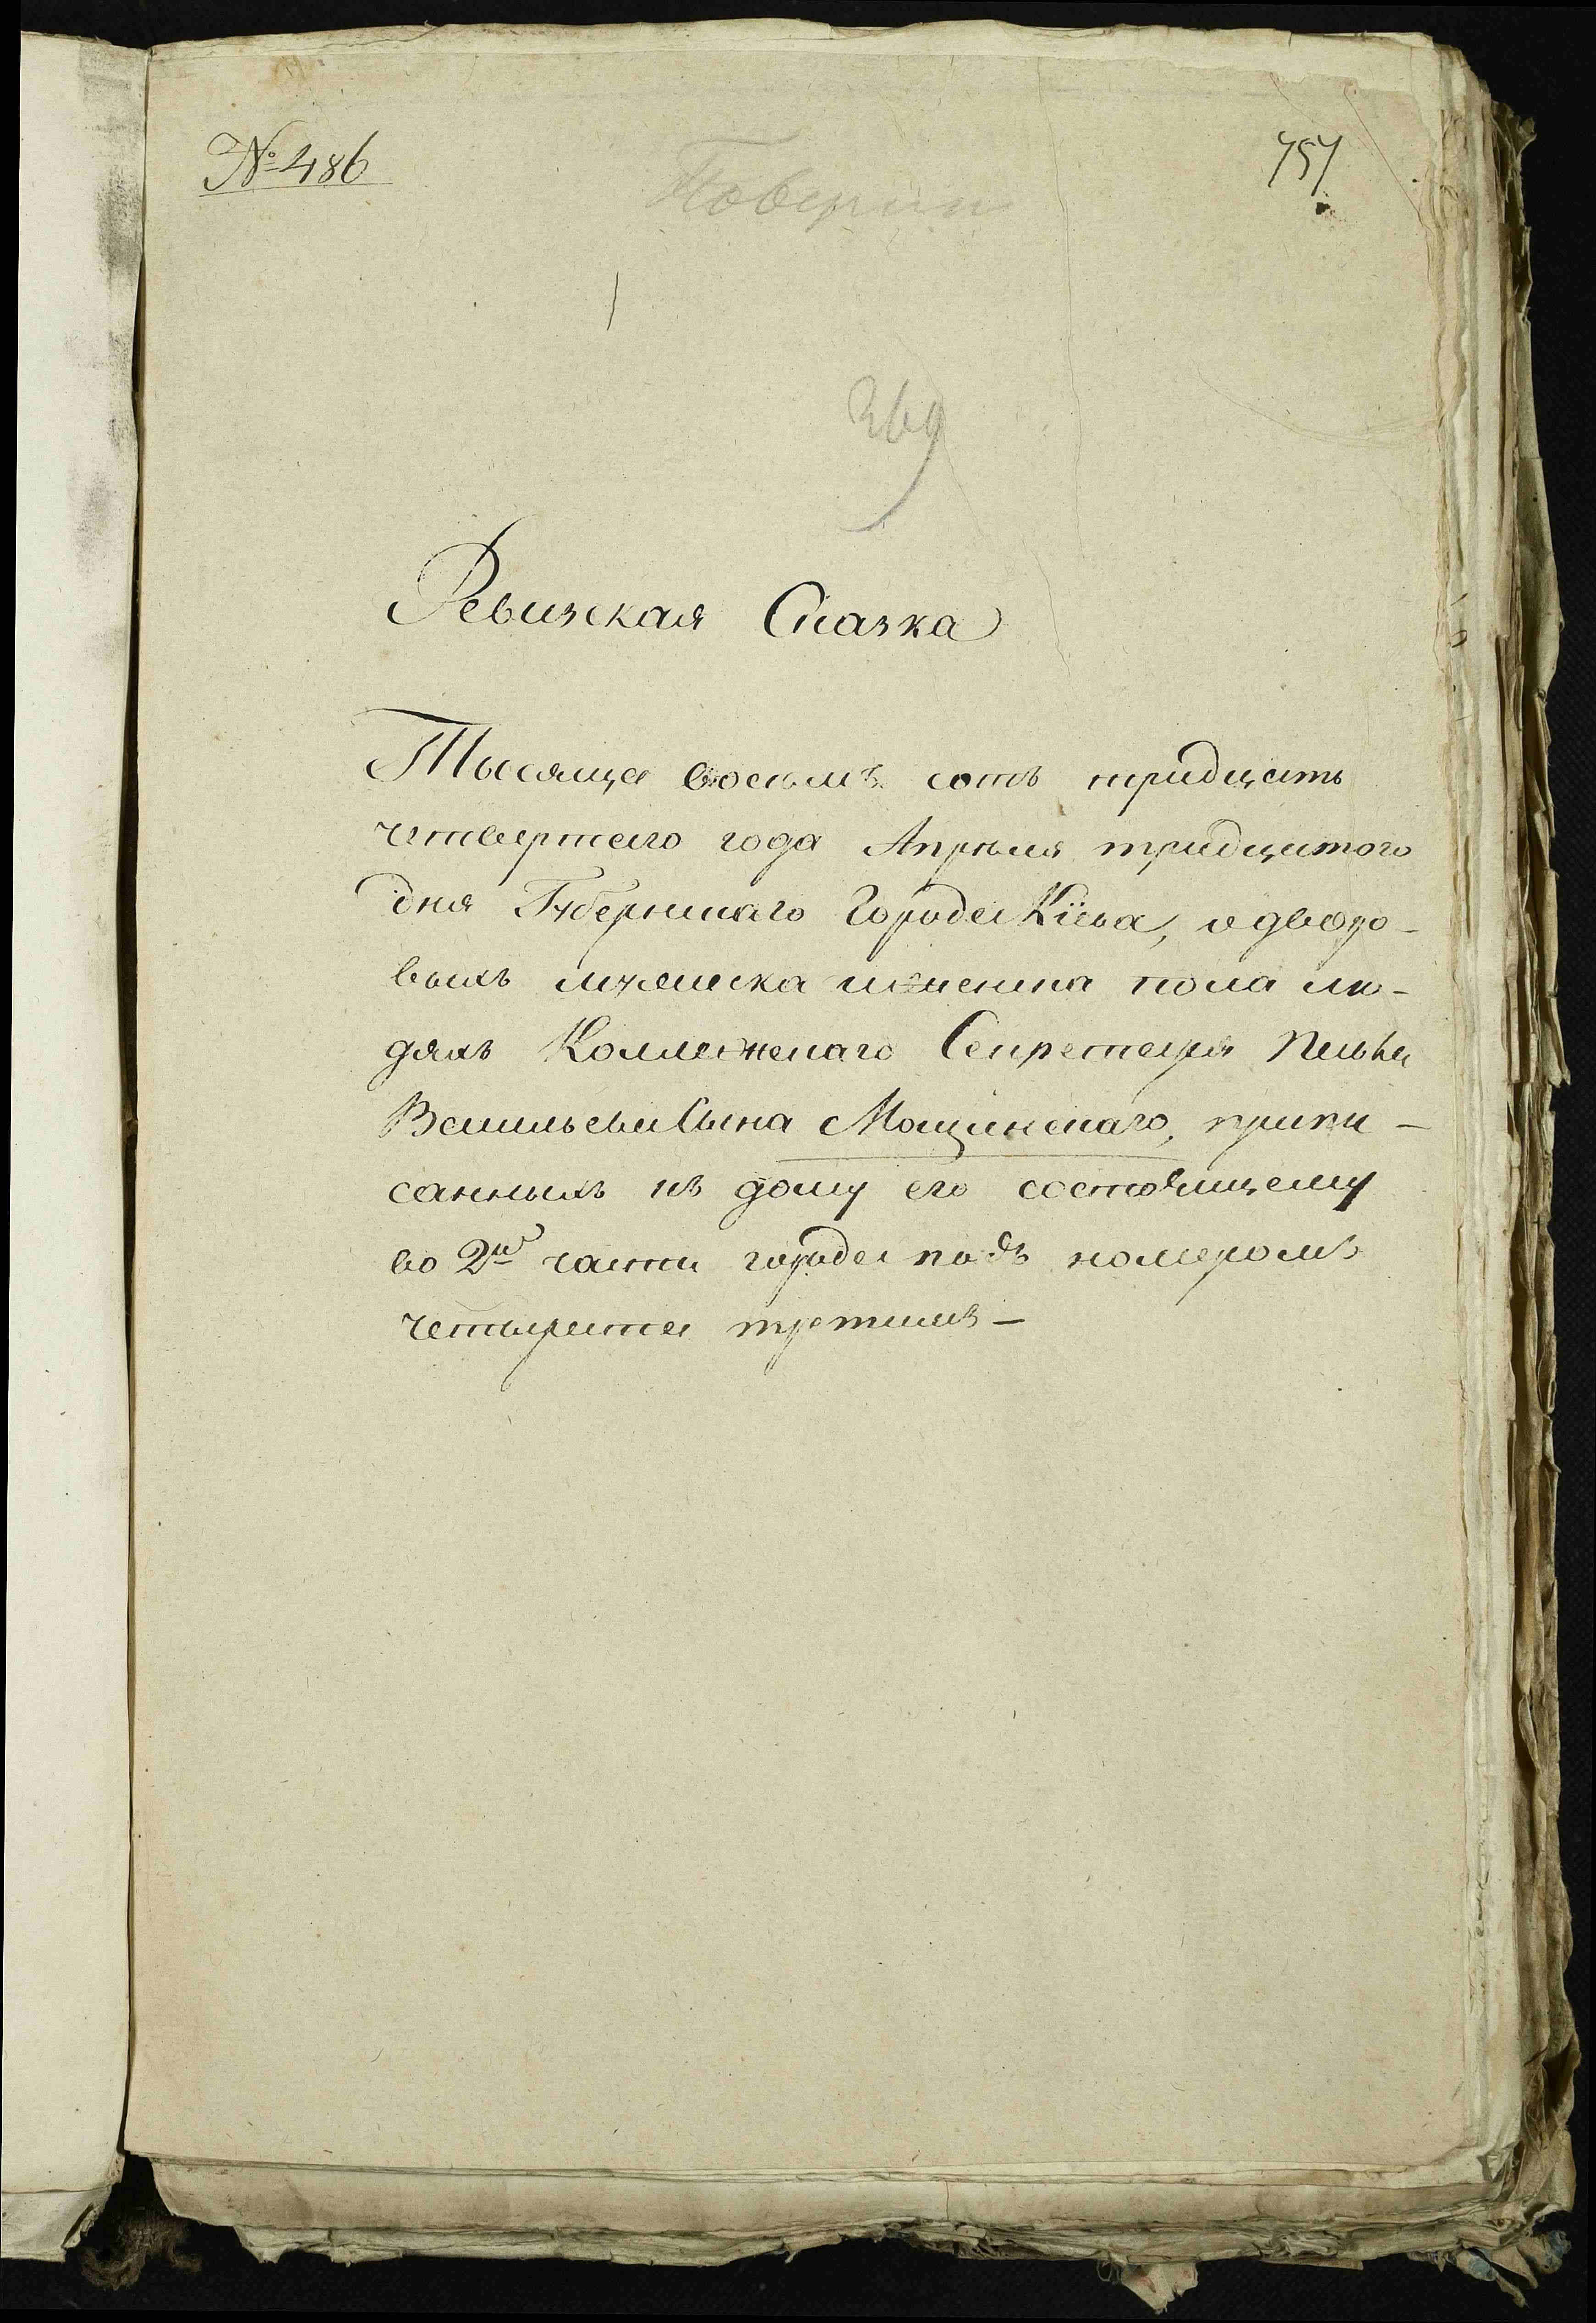 № 486
757
Поверии
369
Ревизская Сказка
Тысяща восемъ сотъ тридцать
четвертаго года Апреля тридцатого
дня Губернскаго Города Кіева, о дворо-
выхъ мужеска и женска пола лю-
дяхъ Коллежскаго Секретаря Павла
Васильева Сына Мощинскаго, припи-
санныхъ къ дому его состоящему
во 2й части города подъ номеромъ
четыреста третимъ-